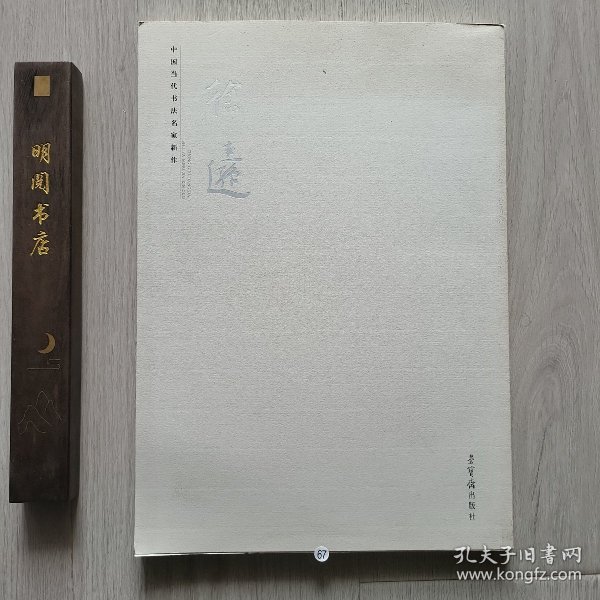 明阅书店
中国当代书法名家新作
徐
荣宝斋出版社
67
孔夫子旧书网
www.kongfz.com